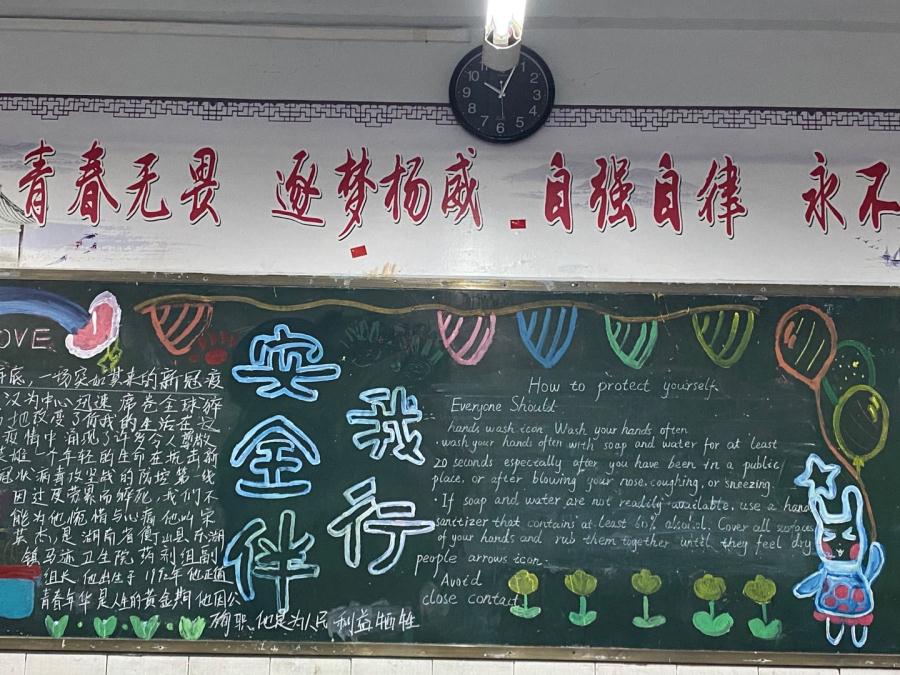 青春无畏 逐梦杨威 自强自律 永不
OVE
底，一场突如其来的新冠疫
汉为中心迅速席卷全球
改变了
的生活在这
疫情中涌现了许多令人尊敬
英雄一个年轻的生命在抗击新
冠状病毒攻坚战的防控第一线
因过度劳累而猝死，我们不
能为他惋惜与心痛他叫宋
英杰，是湖南省衡山县东湖
镇马迹卫生院药剂组副
组长 他出生于1992年他正值
青春年华是人生的黄金期他因公
殉职，他是为人民利益牺牲
安全伴
我行
How to protect yourself
Everyone Should
hands wash icon Wash your hands often
·wash your hands often with soap and water for at least
20 seconds especially after you have been in a public
place, or after blowing your nose, coughing, or sneezing.
·If soap and water are not readily available, use a hand
sanitizer that contains at least 60% alcohol. Cover all surfaces
of your hands and rub them together until they feel dry
people arrows icon.
Avoid
close contact
12 1 2 3 4 5 6 7 8 9 10